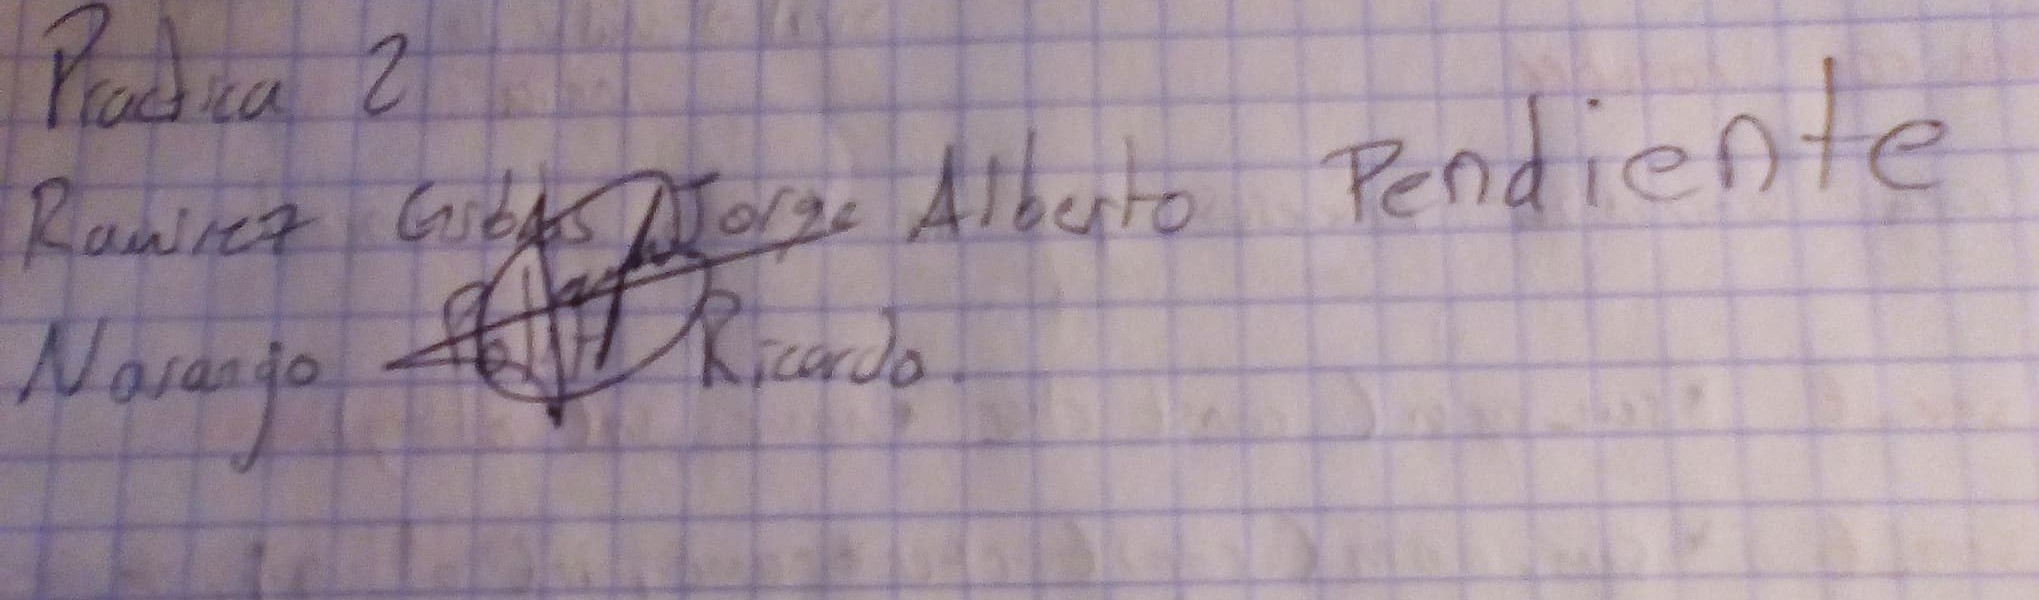 Practica 2
Ramirez Jorge Alberto Pendiente
Naranjo Ricardo.